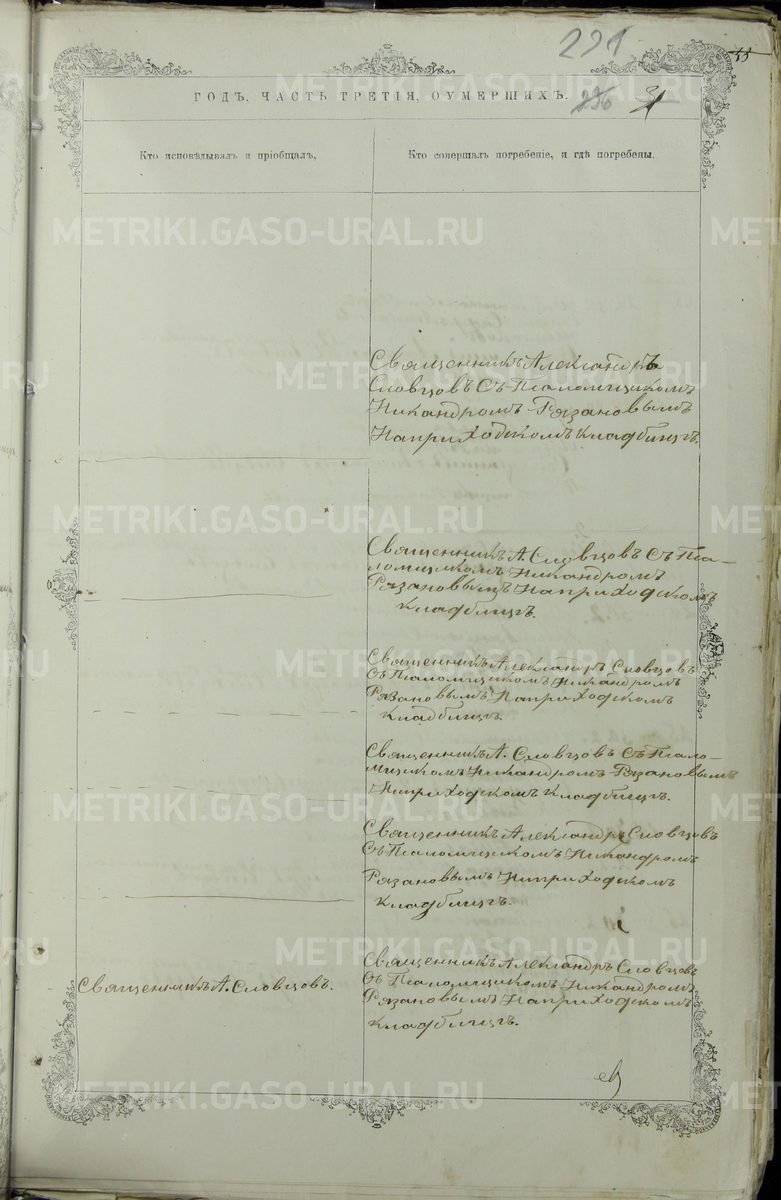 221
33
ГОДЪ, ЧАСТЬ ТРЕТІЯ, О УМЕРШИХЪ.
236
31
Кто исповѣдывалъ и пріобщалъ,
Кто совершалъ погребеніе, и гдѣ погребены.
Священникъ Александръ
Словцовъ съ Псаломщикомъ
Никандромъ Рязановымъ
На приходскомъ кладбищѣ.
Священникъ А. Словцовъ съ Пса-
ломщикомъ Никандромъ
Рязановымъ На приходскомъ
кладбищѣ.
Священникъ Александръ Словцовъ
съ Псаломщикомъ Никандромъ
Рязановымъ На приходскомъ
кладбищѣ.
Священникъ А. Словцовъ съ Псало-
мщикомъ Никандромъ Рязановымъ
На приходскомъ кладбищѣ.
Священникъ Александръ Словцовъ
съ Псаломщикомъ Никандромъ
Рязановымъ На приходскомъ
кладбищѣ.
Священникъ А. Словцовъ.
Священникъ Александръ Словцовъ
съ Псаломщикомъ Никандромъ
Рязановымъ На приходскомъ
кладбищѣ.
METRIKI.GASO-URAL.RU